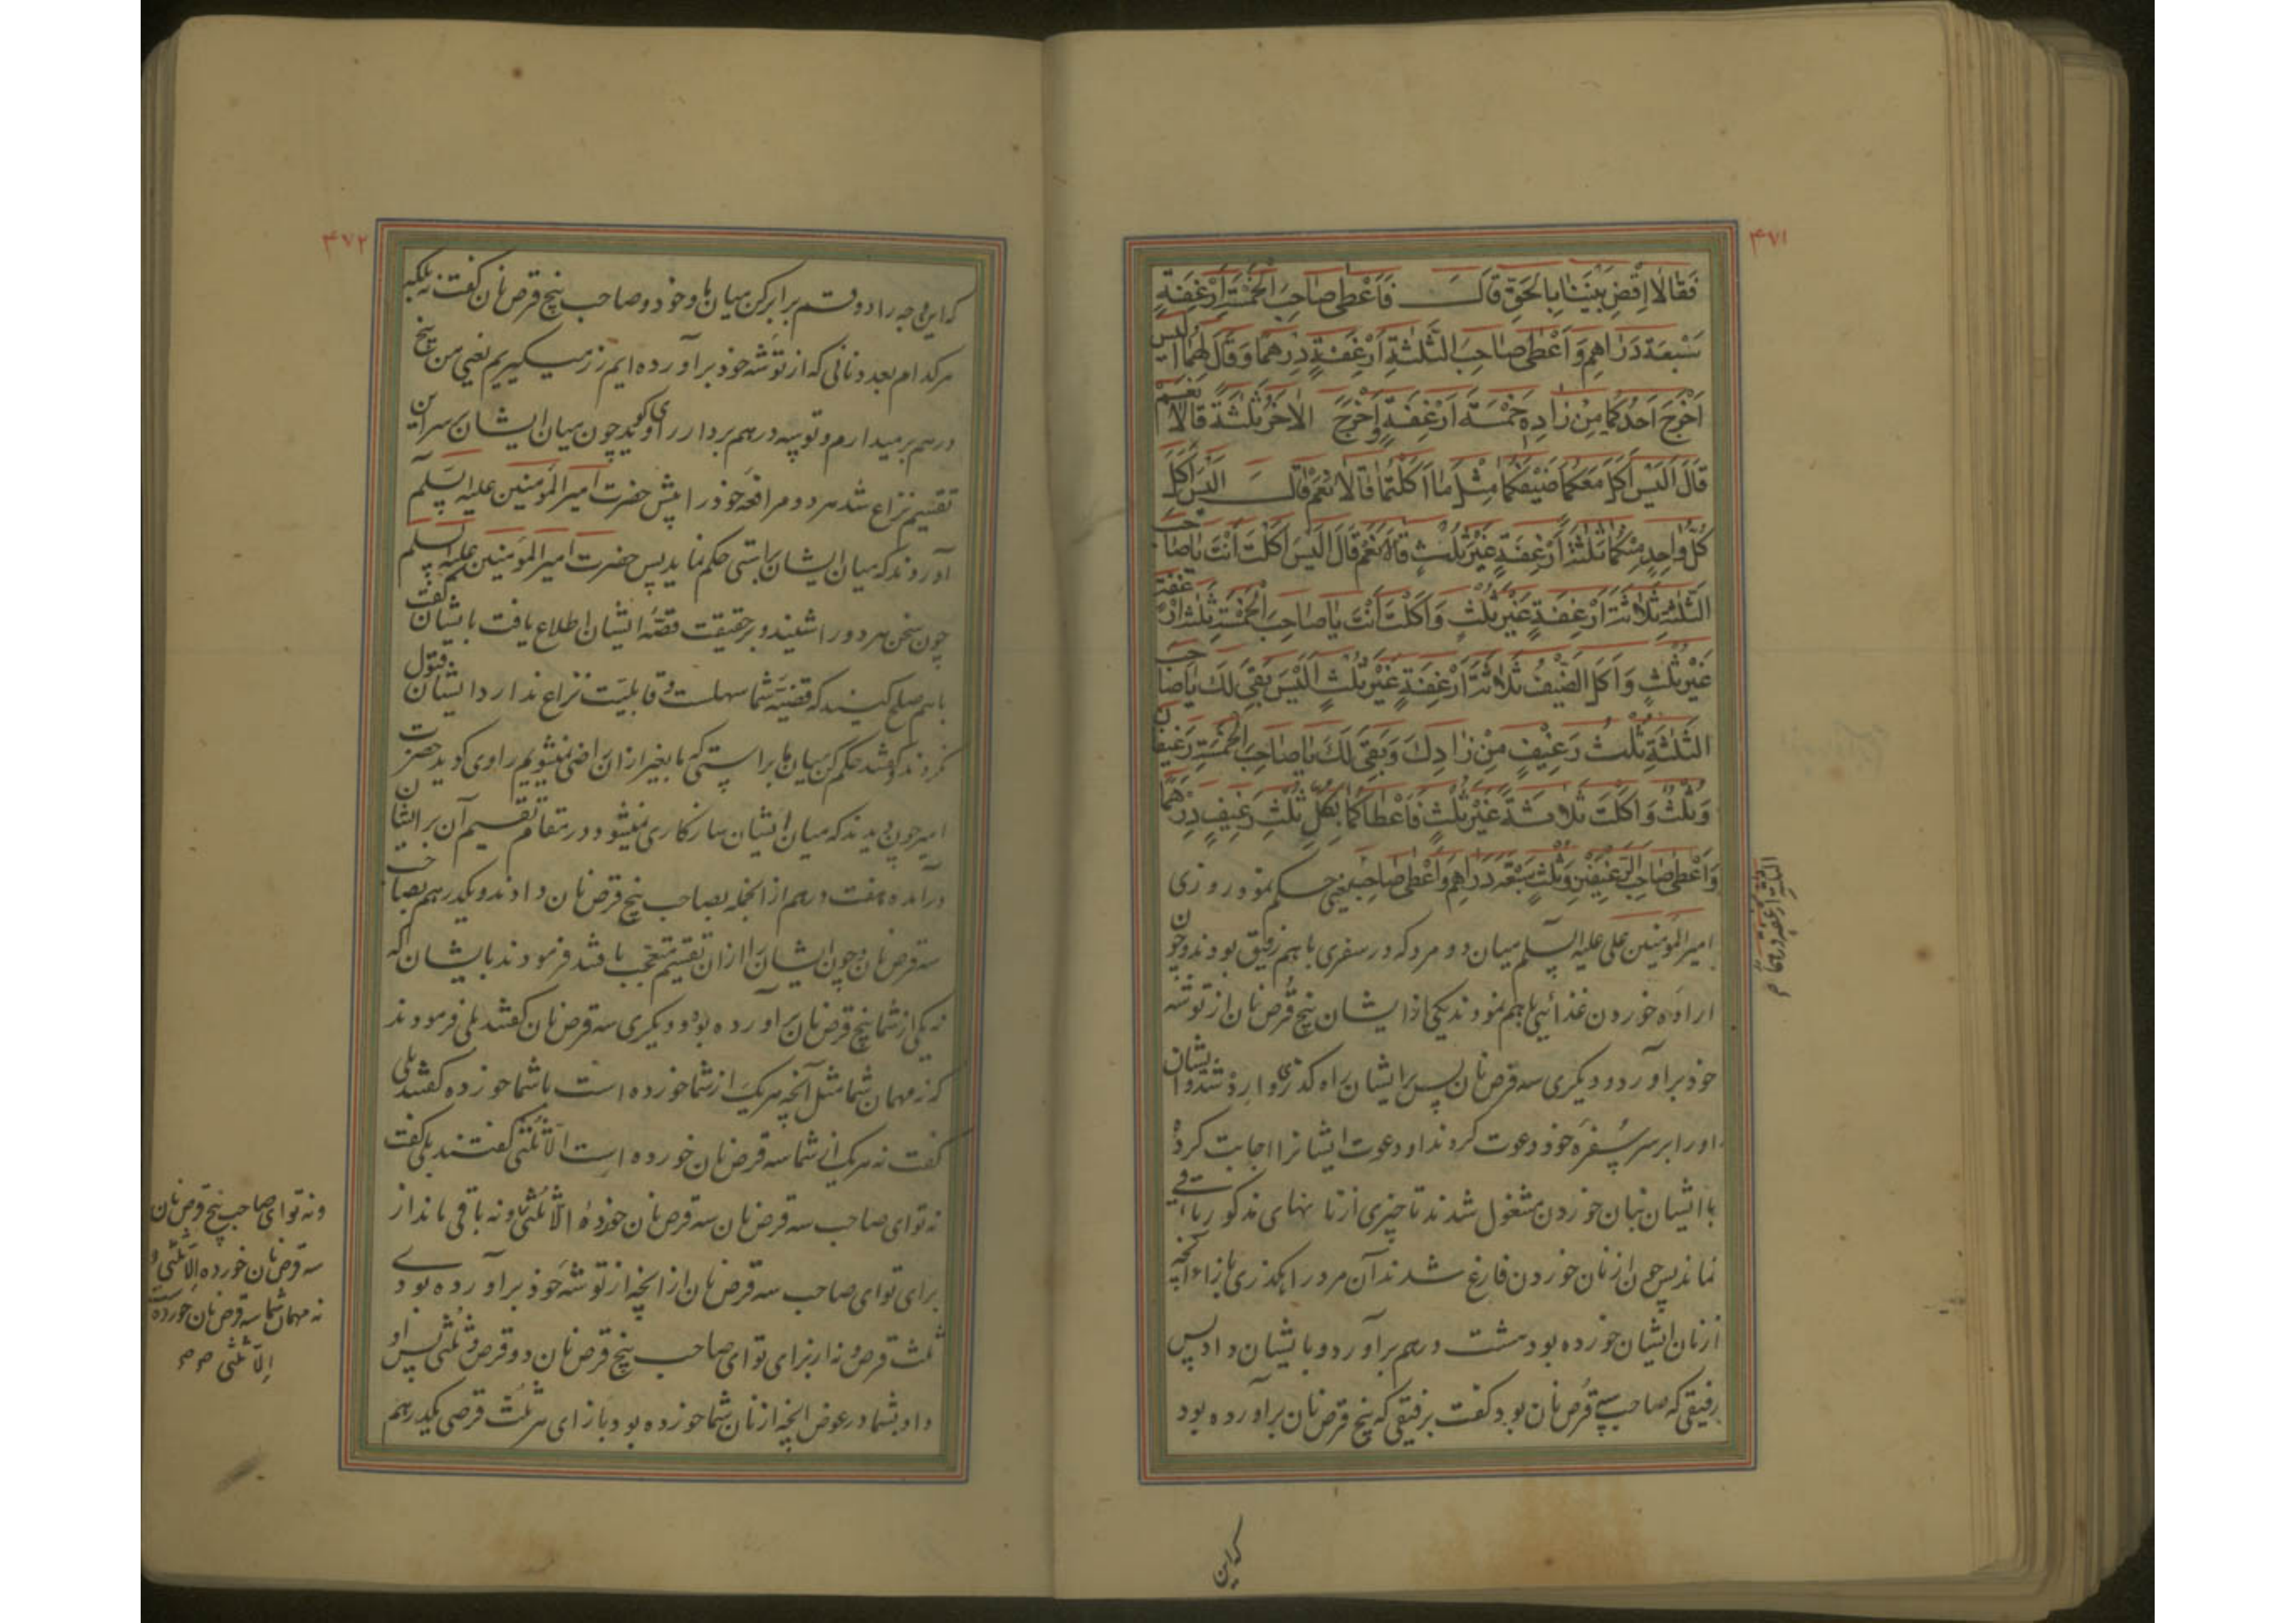 ۴۷۱
فَقَالَا اِقْضِ بَيْنَنَا بِالْحَقِّ قَالَ فَاَعْطٰى صٰاحِبَ الْخَمْسَةِ اَرْغِفَةٍ
سَبْعَةَ دَرٰاهِمَ وَاَعْطٰى صٰاحِبَ الثَّلٰثَةِ اَرْغِفَةٍ دِرْهَمًا وَقٰالَ لَهُمٰا اَلَيْسَ
اَخْرَجَ اَحَدُكُمٰا مِنْ زٰادِهِ خَمْسَةَ اَرْغِفَةٍ وَاَخْرَجَ الْاٰخَرُ ثَلٰثَةً قٰالَا نَعَمْ
قٰالَ اَلَيْسَ اَكَلَ مَعَكُمٰا ضَيْفُكُمٰا مِثْلَ مٰا اَكَلْتُمٰا قٰالَا نَعَمْ قٰالَ اَلَيْسَ اَكَلَ
كُلُّ وٰاحِدٍ مِنْكُمٰا ثَلٰثَةَ اَرْغِفَةٍ غَيْرَ ثُلْثٍ قٰالَا نَعَمْ قٰالَ اَلَيْسَ اَكَلْتَ اَنْتَ يٰا صٰاحِبَ
الثَّلٰثَةِ ثَلٰاثَةَ اَرْغِفَةٍ غَيْرَ ثُلْثٍ وَاَكَلْتَ اَنْتَ يٰا صٰاحِبَ الْخَمْسَةِ ثَلٰثَةَ اَرْغِفَةٍ
غَيْرَ ثُلْثٍ وَاَكَلَ الضَّيْفُ ثَلٰاثَةَ اَرْغِفَةٍ غَيْرَ ثُلْثٍ اَلَيْسَ بَقِيَ لَكَ يٰا صٰاحِبَ
الثَّلٰثَةِ ثُلْثُ رَغِيْفٍ مِنْ زٰادِكَ وَبَقِيَ لَكَ يٰا صٰاحِبَ الْخَمْسَةِ رَغِيفٰانِ
وَثُلْثٌ وَاَكَلْتَ ثَلٰاثَةً غَيْرَ ثُلْثٍ فَاَعْطٰاكُمٰا بِكُلِّ ثُلْثِ رَغِيفٍ دِرْهَمًا
وَاَعْطٰى صٰاحِبَ الرَّغِيفَيْنِ وَثُلْثٍ سَبْعَةَ دَرٰاهِمَ وَاَعْطٰى صٰاحِبَ يعنى حكم نمود روزى
اميرالمؤمنين على عليه السلم ميان دو مرد كه در سفرى باهم رفيق بودند و چون
اراده خوردن غذائى باهم نمودند يكى از ايشان پنج قرص نان از توشه
خود برآورد و ديگرى سه قرص نان پس برايشان راه گذرى وارد شد و ايشان
او را بر سر سفره خود دعوت كردند او دعوت ايشانرا اجابت كرد
با ايشان بنان خوردن مشغول شدند تا چيزى از نانهاى مذكور باقى
نماند پس چون از نان خوردن فارغ شدند آن مرد راهگذرى بازاء آنچه
از نان ايشان خورده بود هشت درهم برآورد و بايشان داد پس
رفيقى كه صاحب سه قرص نان بود گفت برفيقى كه پنج قرص نان برآورده بود
الثلثة ارغفة درهمًا
كه اين
۴۷۲
كه اين وجه را دو قسم برابر كن ميان ما و خود و صاحب پنج قرص نان گفت نه بلكه
هركدام بعدد نانى كه از توشه خود برآورده ايم زر ميگيريم يعنى من پنج
درهم برميدارم و تو سه درهم بردار راوى گويد چون ميان ايشان بر سر اين
تقسيم نزاع شد هر دو مرافعه خود را پيش حضرت اميرالمؤمنين عليه السلم
آوردند كه ميان ايشان براستى حكم نمايد پس حضرت اميرالمؤمنين عليه السلم
چون سخن هر دو را شنيد و بر حقيقت قصه ايشان اطلاع يافت بايشان گفت
باهم صلح كنيد كه قضيه شما سهلست و قابليت نزاع ندارد ايشان قبول
نكردند و گفتند حكم كن ميان ما براستى كه ما بغير از ان راضى نميشويم راوى گويد حضرت
امير چون ديدند كه ميان ايشان سازكارى نميشود در مقام تقسيم آن بر ايشان
درآمده هفت درهم از انجمله بصاحب پنج قرص نان دادند و يكدرهم بصاحب
سه قرص نان و چون ايشان را از ان تقسيم متعجب يافتند فرمودند بايشان كه
نه يكى از شما پنج قرص نان برآورده بود و ديگرى سه قرص نان گفتند بلى فرمودند
كه نه مهمان شما مثل آنچه هريك از شما خورده است با شما خورده گفتند بلى
گفت نه هريك از شما سه قرص نان خورده است الّا ثلثى گفتند بلى گفت
نه تو اى صاحب سه قرص نان سه قرص نان خورده الّا ثلثى و نه باقى ماند از
براى تو اى صاحب سه قرص نان از انچه از توشه خود برآورده بودى
ثلث قرص و نه از براى تو اى صاحب پنج قرص نان دو قرص و ثلثى پس او
داد بشما در عوض انچه از نان شما خورده بود بازاى هر ثلث قرصى يكدرهم
و نه تو اى صاحب پنج قرص نان
سه قرص نان خورده الّا ثلثى و
نه مهمان شما سه قرص نان خورده است
الّا ثلثى صح صح